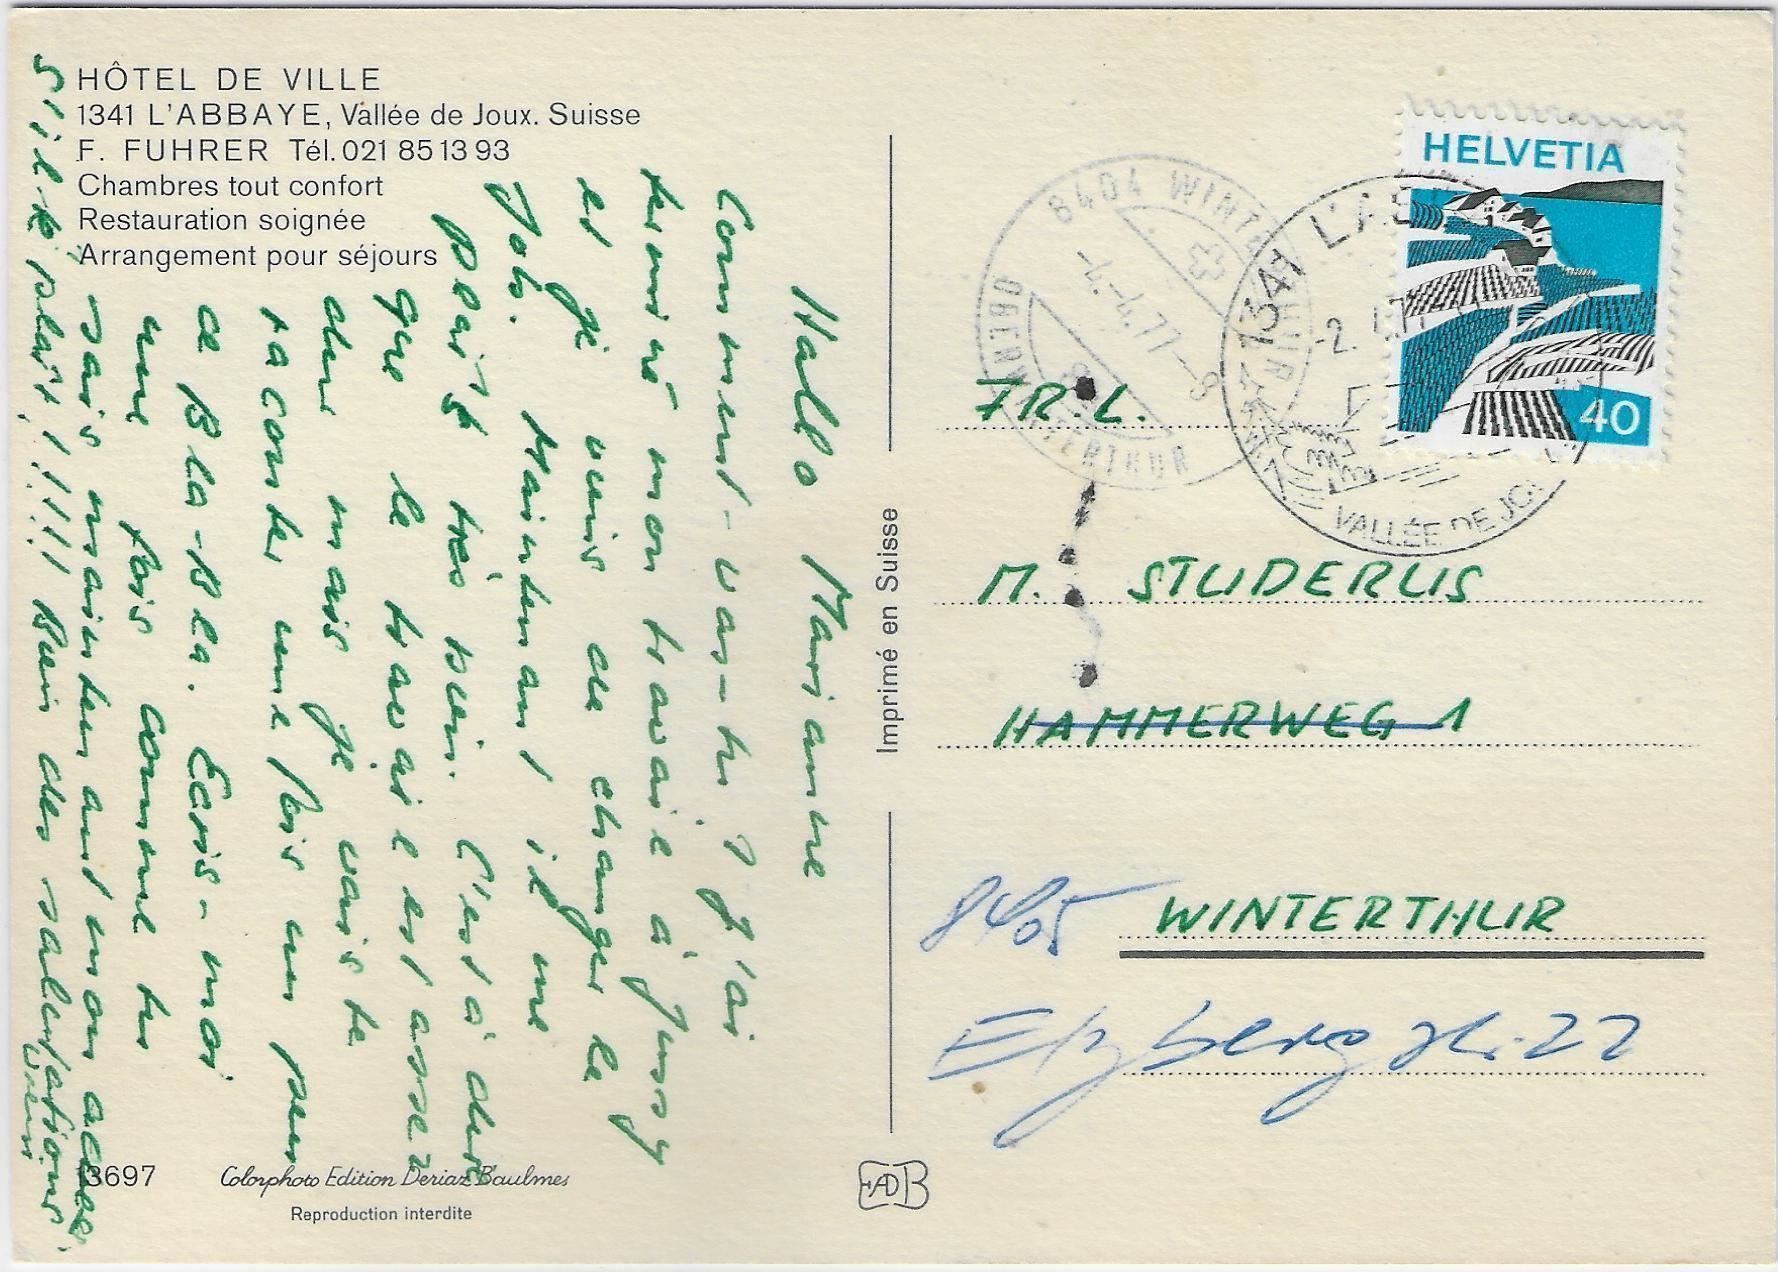 HÔTEL DE VILLE
1341 L'ABBAYE, Vallée de Joux. Suisse
F. FUHRER Tél. 021 85 13 93
Chambres tout confort
Restauration soignée
Arrangement pour séjours
Hallo Marianne
Comment-vas-tu? J'ai
terminé mon travail à Jussy
et je viens de changer le
Job. Maintenant il me
paraît très bien. C'est à dire
que le travail est assez
dur mais je vais te
raconter une fois un peu
ce Bla-Bla. Ecris-moi
une fois comme tu
sais maintenant mon adresse
s'il-te plaît!!!!! Bien des salutations
Imprimé en Suisse
HELVETIA
40
1341 L'AB
-2.
VALLÉE DE JO
8404 WINTERTHUR
-4.-4.77-8
OBERWINTERTHUR
FR.L.
M. STUDERUS
HAMMERWEG 1
8405 WINTERTHUR
Elzbergstr. 22
13697
Colorphoto Edition Deriaz Baulmes
Reproduction interdite
EADB